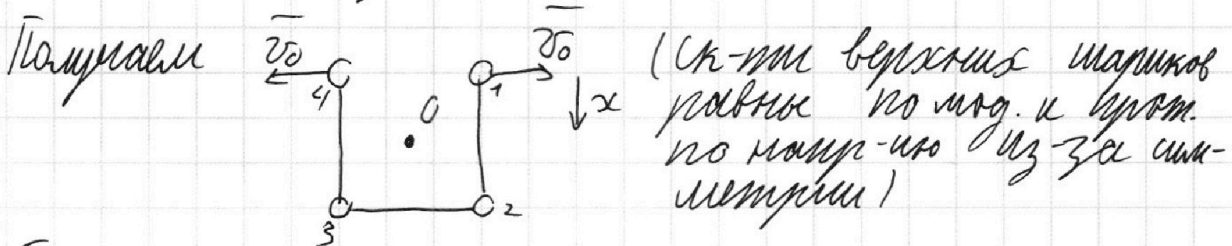 Получаем
v̅₀
v̅₀
4
1
O
x
3
2
(Ск-ти верхних шариков
равны по мод. и прот.
по напр-ию из-за сим-
метрии)